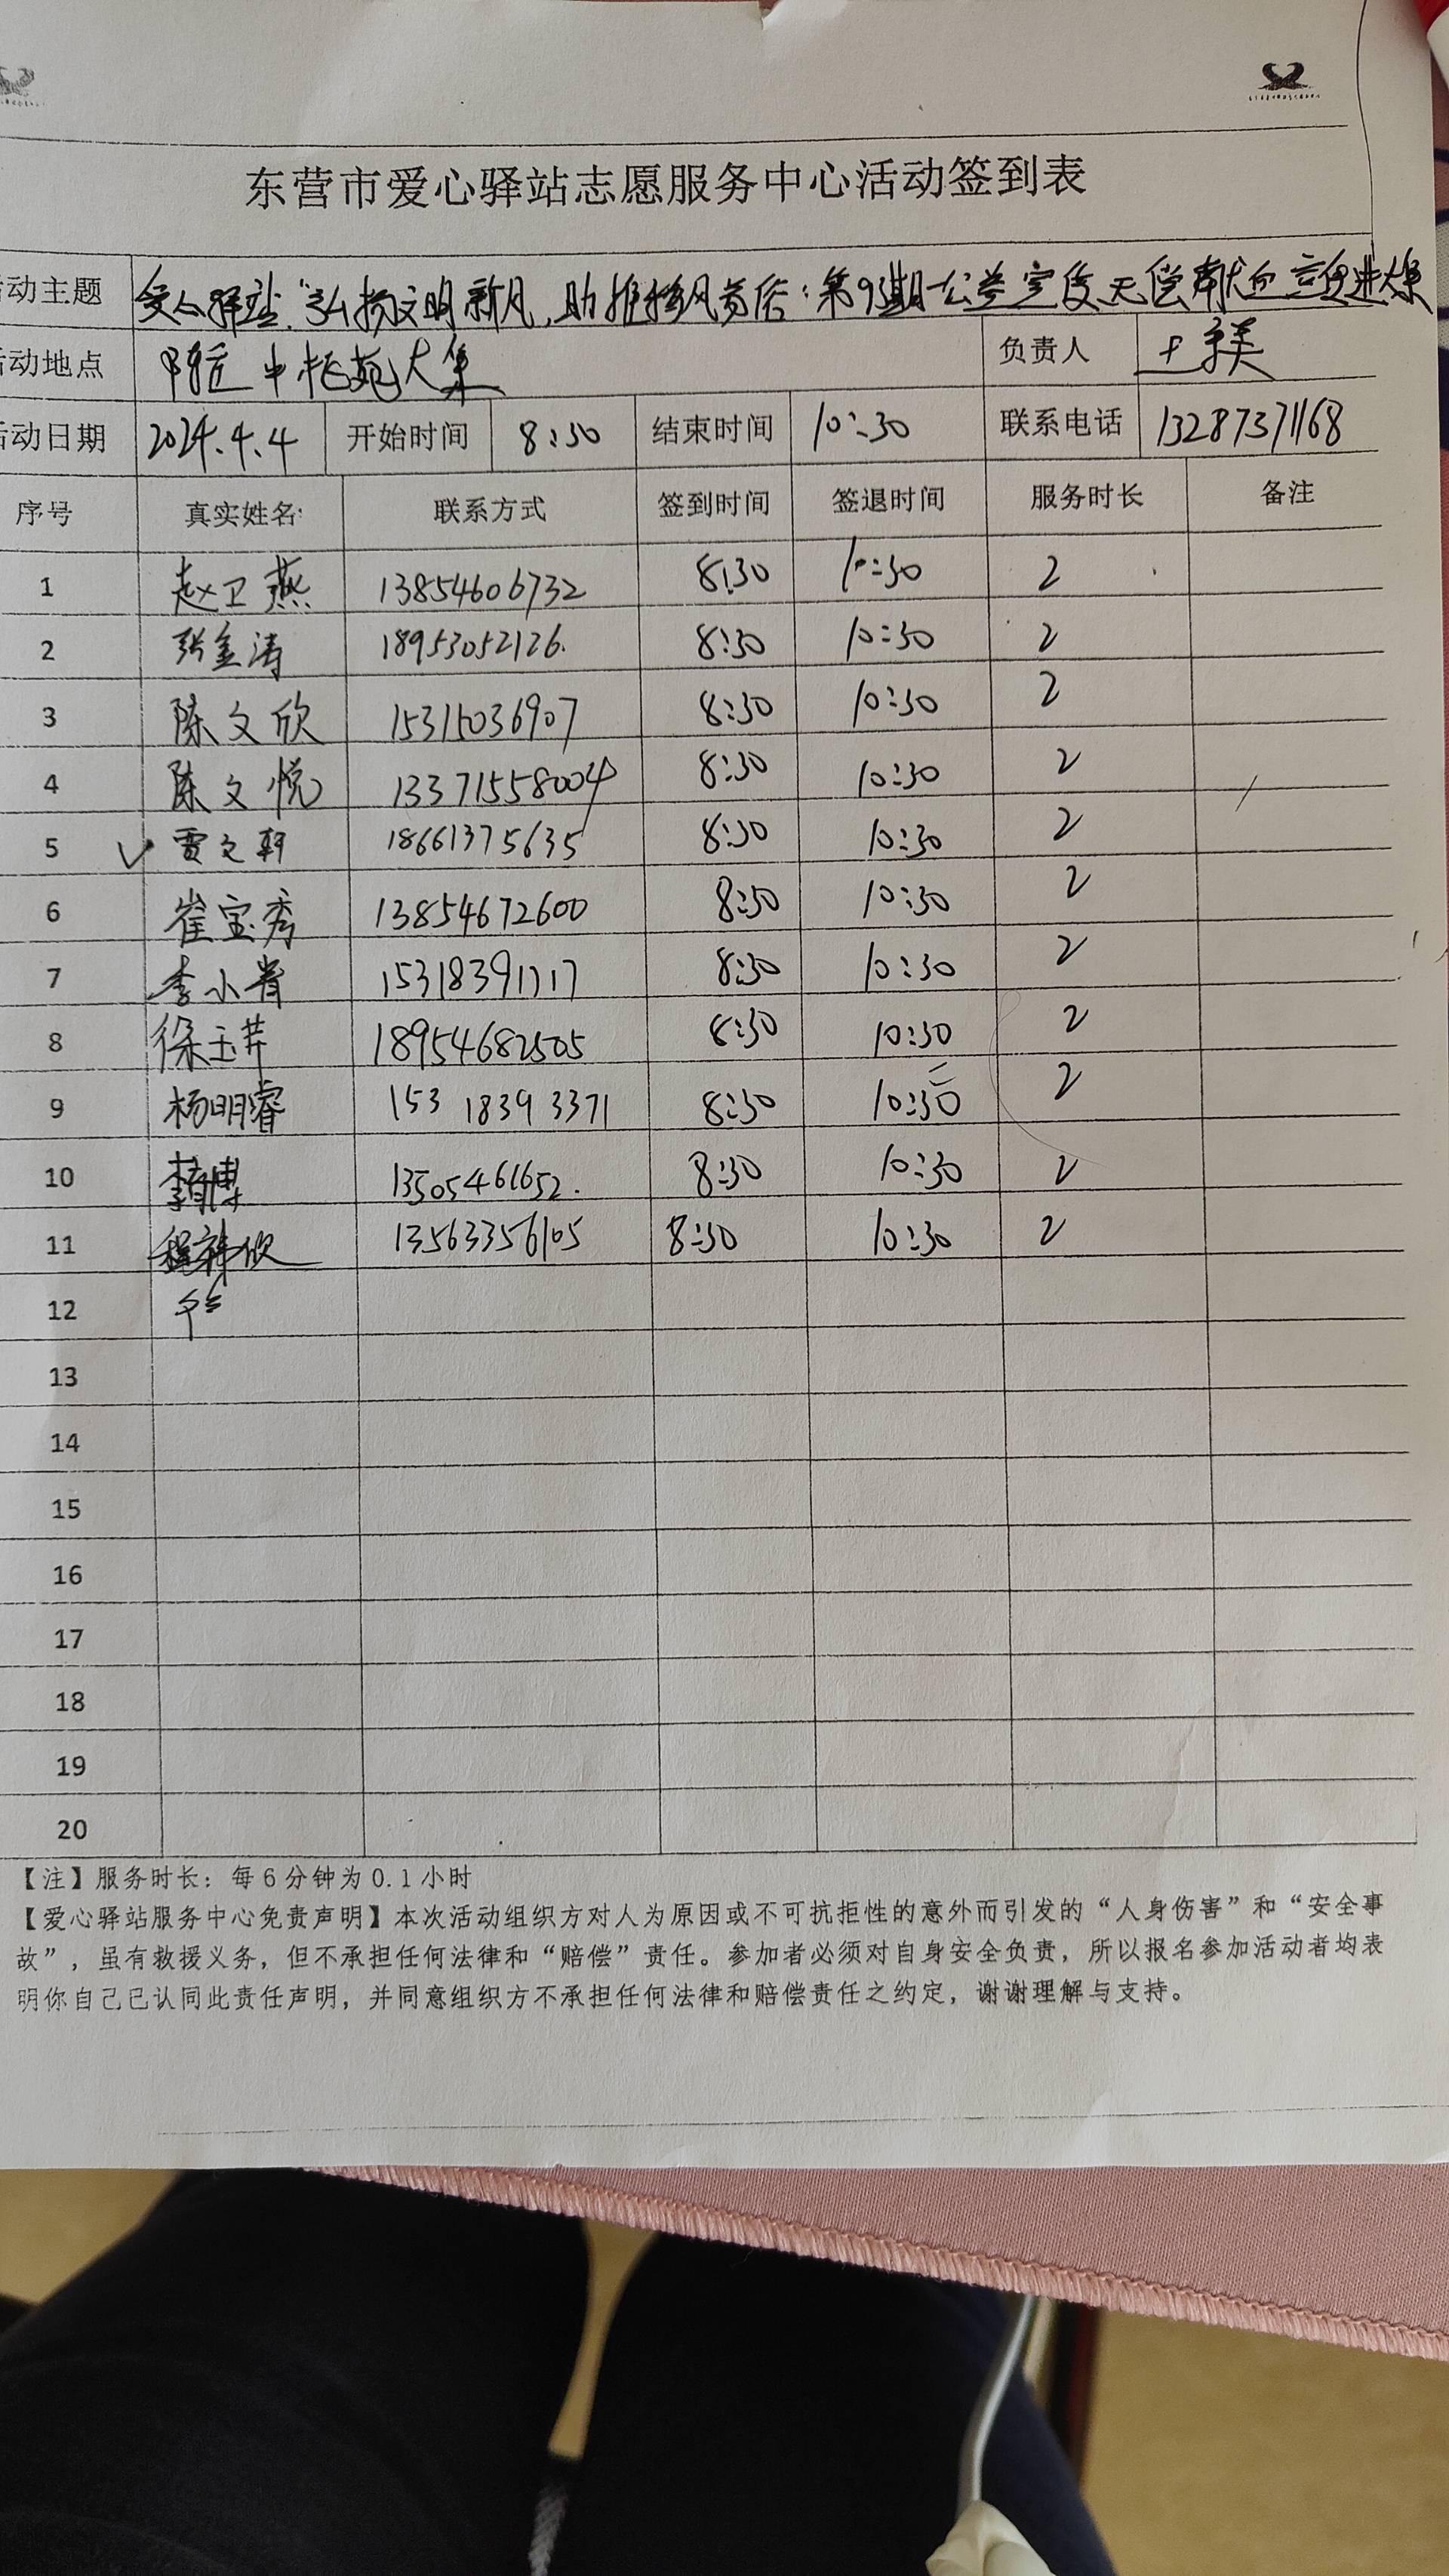 东营市爱心驿站志愿服务中心活动签到表
动主题 爱心驿站"弘扬文明新风,助推移风易俗:第9期公益宣传无偿献血 进大集
动地点 中 苑大集 负责人
动日期 2024.4.4 开始时间 8:30 结束时间 10:30 联系电话 13287371168
序号 真实姓名 联系方式 签到时间 签退时间 服务时长 备注
1 赵卫燕 13854606732 8:30 10:30 2
2 张金涛 18953052126. 8:30 10:30 2
3 陈文欣 15315036907 8:30 10:30 2
4 陈文悦 13371558004 8:30 10:30 2
5 ✓ 贾文轩 18661375635 8:30 10:30 2
6 崔宝秀 13854672600 8:30 10:30 2
7 李小青 15318391717 8:30 10:30 2
8 徐玉芹 18954682505 8:30 10:30 2
9 杨明睿 153 1839 3371 8:30 10:30 2
10 13505461652. 8:30 10:30 2
11 程祥欣 13563356105 8:30 10:30 2
12
13
14
15
16
17
18
19
20
【注】服务时长：每6分钟为0.1小时
【爱心驿站服务中心免责声明】本次活动组织方对人为原因或不可抗拒性的意外而引发的“人身伤害”和“安全事
故”，虽有救援义务，但不承担任何法律和“赔偿”责任。参加者必须对自身安全负责，所以报名参加活动者均表
明你自己已认同此责任声明，并同意组织方不承担任何法律和赔偿责任之约定，谢谢理解与支持。